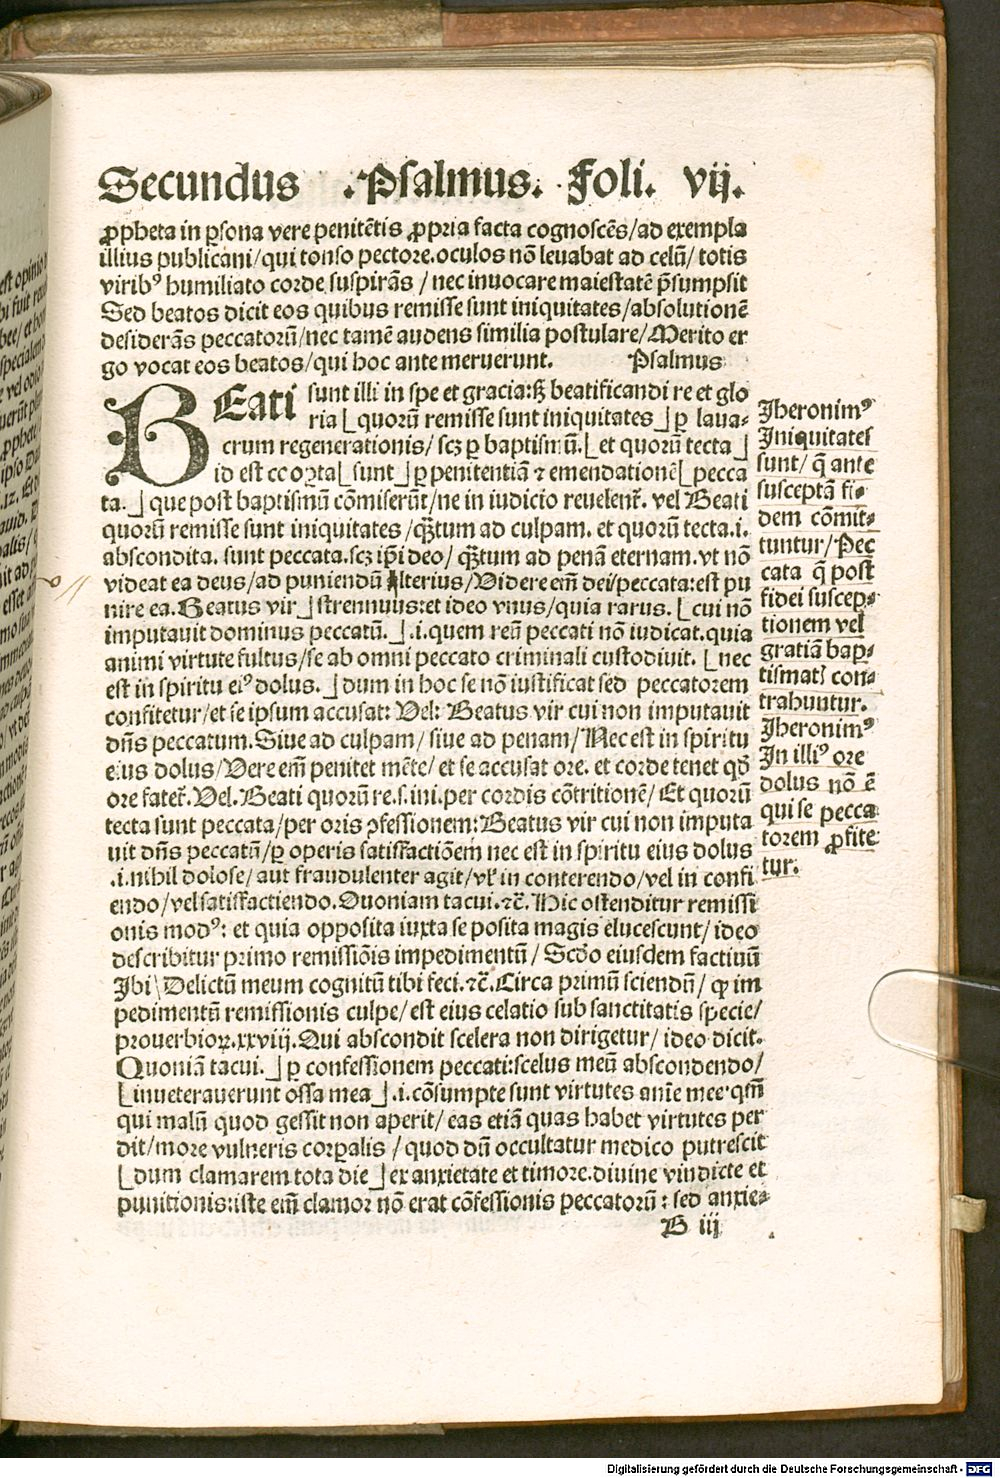 Secundus .Psalmus. Foli. vij.
ꝓpheta in ꝑsona vere penitētis ꝓpria facta cognoscēs/ad exempla
illius publicani/qui tonso pectore.oculos nō leuabat ad celū/totis
viribꝰ humiliato corde suspirās/nec inuocare maiestatē p̄sumpsit
Sed beatos dicit eos quibus remisse sunt iniquitates/absolutionē
desiderās peccatorū/nec tamē audens similia postulare/Merito er
go vocat eos beatos/qui hoc ante meruerunt. Psalmus
BEati sunt illi in spe et gracia:sꝫ beatificandi re et glo
ria ⌊quorū remisse sunt iniquitates⌋ ꝑ laua-
crum regenerationis/scꝫ ꝑ baptismū.⌊et quorū tecta⌋
id est cooꝑta⌊sunt⌋ꝑ penitentiā ⁊ emendationē⌊pecca
ta.⌋que post baptismū cōmiserūt/ne in iudicio reuelent̄. vel Beati
quorū remisse sunt iniquitates/qꝫtum ad culpam. et quorū tecta.i.
abscondita. sunt peccata.scꝫ ip̄i deo/qꝫtum ad penā eternam.vt nō
videat ea deus/ad puniendū alterius/Videre em̄ dei/peccata:est pu
nire ea.Beatus vir⌋strennuus:et ideo vnus/quia rarus.⌊cui nō
imputauit dominus peccatū.⌋.i.quem reū peccati nō iudicat.quia
animi virtute fultus/se ab omni peccato criminali custodiuit.⌊nec
est in spiritu eiꝰ dolus.⌋dum in hoc se nō iustificat sed peccatorem
confitetur/et se ipsum accusat: Vel: Beatus vir cui non imputauit
dn̄s peccatum.Siue ad culpam/siue ad penam/Nec est in spiritu
eius dolus/Vere em̄ penitet mēte/et se accusat ore. et corde tenet qd̄
ore fatet̄.Vel.Beati quorū re.s.ini.per cordis cōtritionē/Et quorū
tecta sunt peccata/per oris ꝯfessionem:Beatus vir cui non imputa
uit dn̄s peccatū/ꝑ operis satisfactiōem nec est in spiritu eius dolus
.i.nihil dolose/aut fraudulenter agit/vl̄ in conterendo/vel in confi
endo/vel satisfactiendo.Quoniam tacui.⁊c̄.Hic ostenditur remissi
onis modꝰ: et quia opposita iuxta se posita magis elucescunt/ideo
describitur primo remissiōis impedimentū/Scd̄o eiusdem factiuū
Ibi\Delictū meum cognitū tibi feci.⁊c̄.Circa primū sciendū/ꝙ im
pedimentū remissionis culpe/est eius celatio sub sanctitatis specie/
prouerbioꝝ.xxviij.Qui abscondit scelera non dirigetur/ideo dicit.
Quoniā tacui.⌋ꝑ confessionem peccati:scelus meū abscondendo/
⌊inueterauerunt ossa mea⌋.i.cōsumpte sunt virtutes anīe mee·qm̄
qui malū quod gessit non aperit/eas etiā quas habet virtutes per
dit/more vulneris corꝑalis/quod dū occultatur medico putrescit
⌊dum clamarem tota die⌋ex anxietate et timore.diuine vindicte et
punitionis:iste em̄ clamor nō erat cōfessionis peccatorū: sed anxie-
B iij
Jheronimꝰ
Iniquitates
sunt/q̄ ante
susceptā fi-
dem cōmit-
tuntur/Pec
cata q̄ post
fidei suscep-
tionem vel
gratiā bap-
tismatꝭ con-
trahuntur.
Jheronimꝰ
In illiꝰ ore
dolus nō ē
qui se pecca
torem ꝓfite
tur.
Digitalisierung gefördert durch die Deutsche Forschungsgemeinschaft - DFG